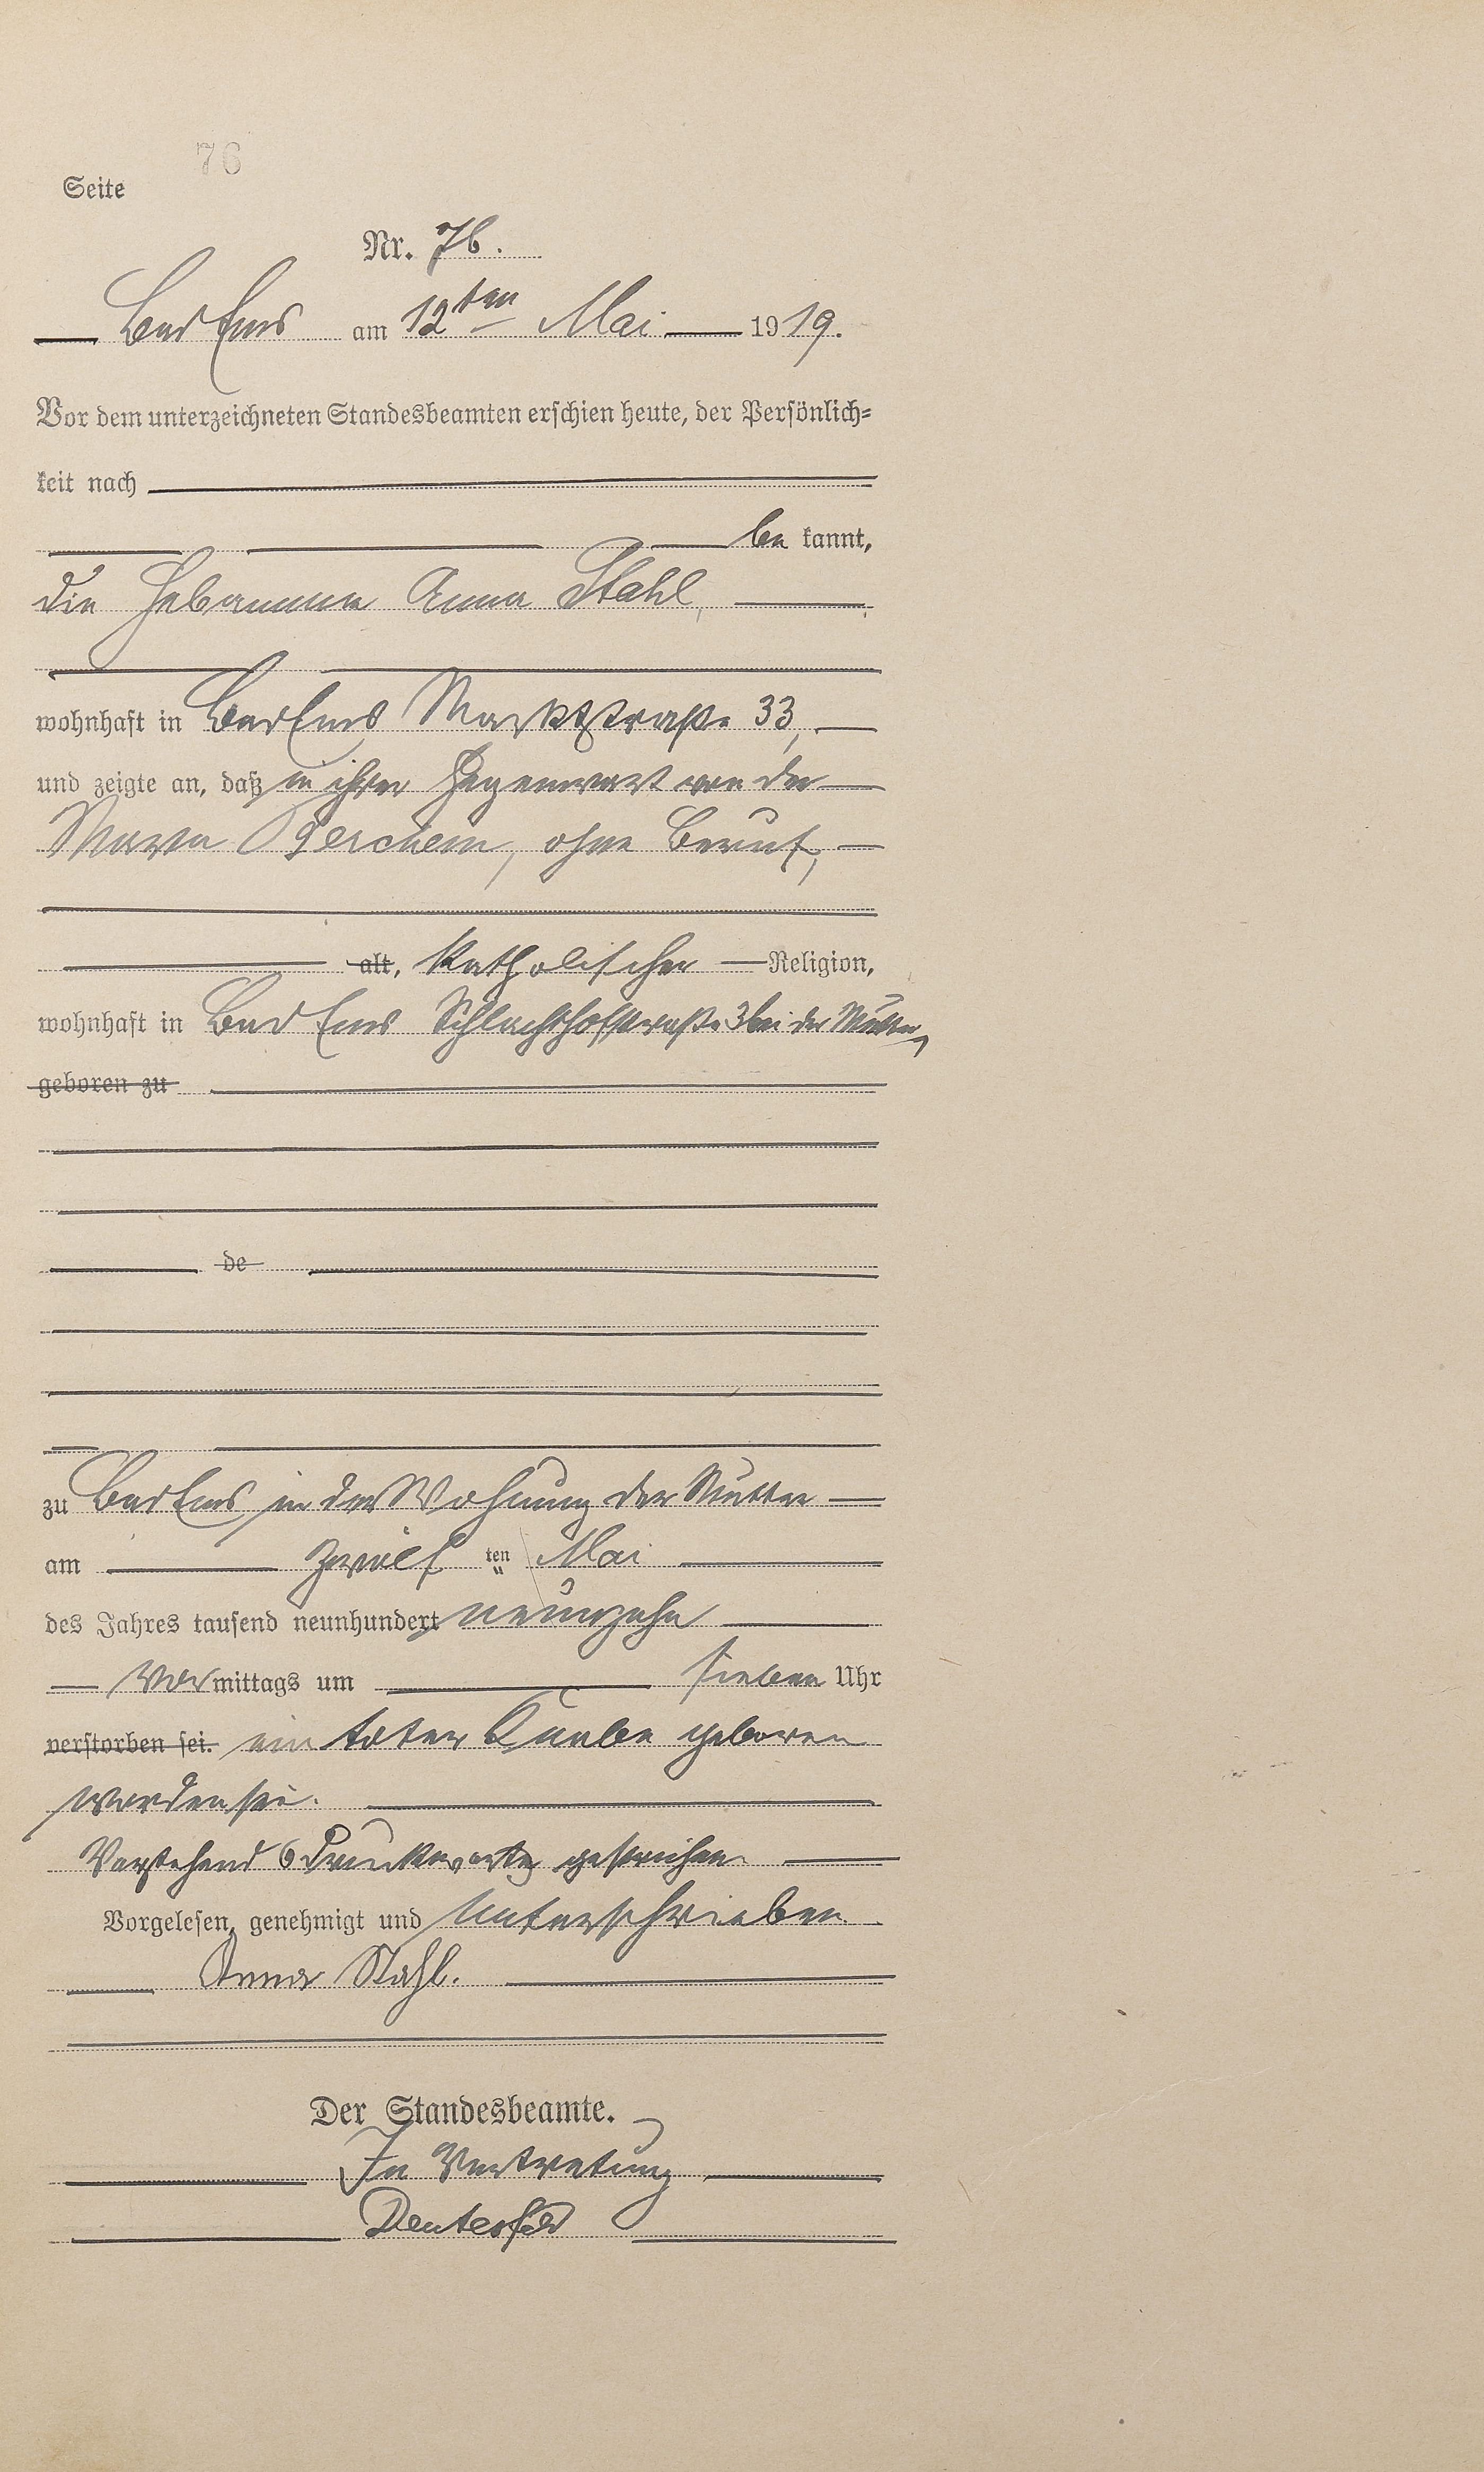 76
Seite
Nr. 76.
Bad Ems am 12ten Mai 1919.
Vor dem unterzeichneten Standesbeamten erschien heute, der Persönlich-
keit nach
bekannt,
die Hebamme Anna Stahl,
wohnhaft in Bad Ems Marktstraße 33,
und zeigte an, daß in ihrer Gegenwart von der
Maria, ohne Beruf,
alt, katholischer Religion,
wohnhaft in Bad Ems Schlachthofstraße 3 bei der Mutter,
geboren zu
de
zu Bad Ems in der Wohnung der Mutter
am zwölften Mai
des Jahres tausend neunhundert neunzehn
Vormittags um sieben Uhr
verstorben sei. ein toter Knabe geboren
worden sei.
Vorstehend 6 Druckworte gestrichen.
Vorgelesen, genehmigt und unterschrieben.
Anna Stahl.
Der Standesbeamte.
In Vertretung